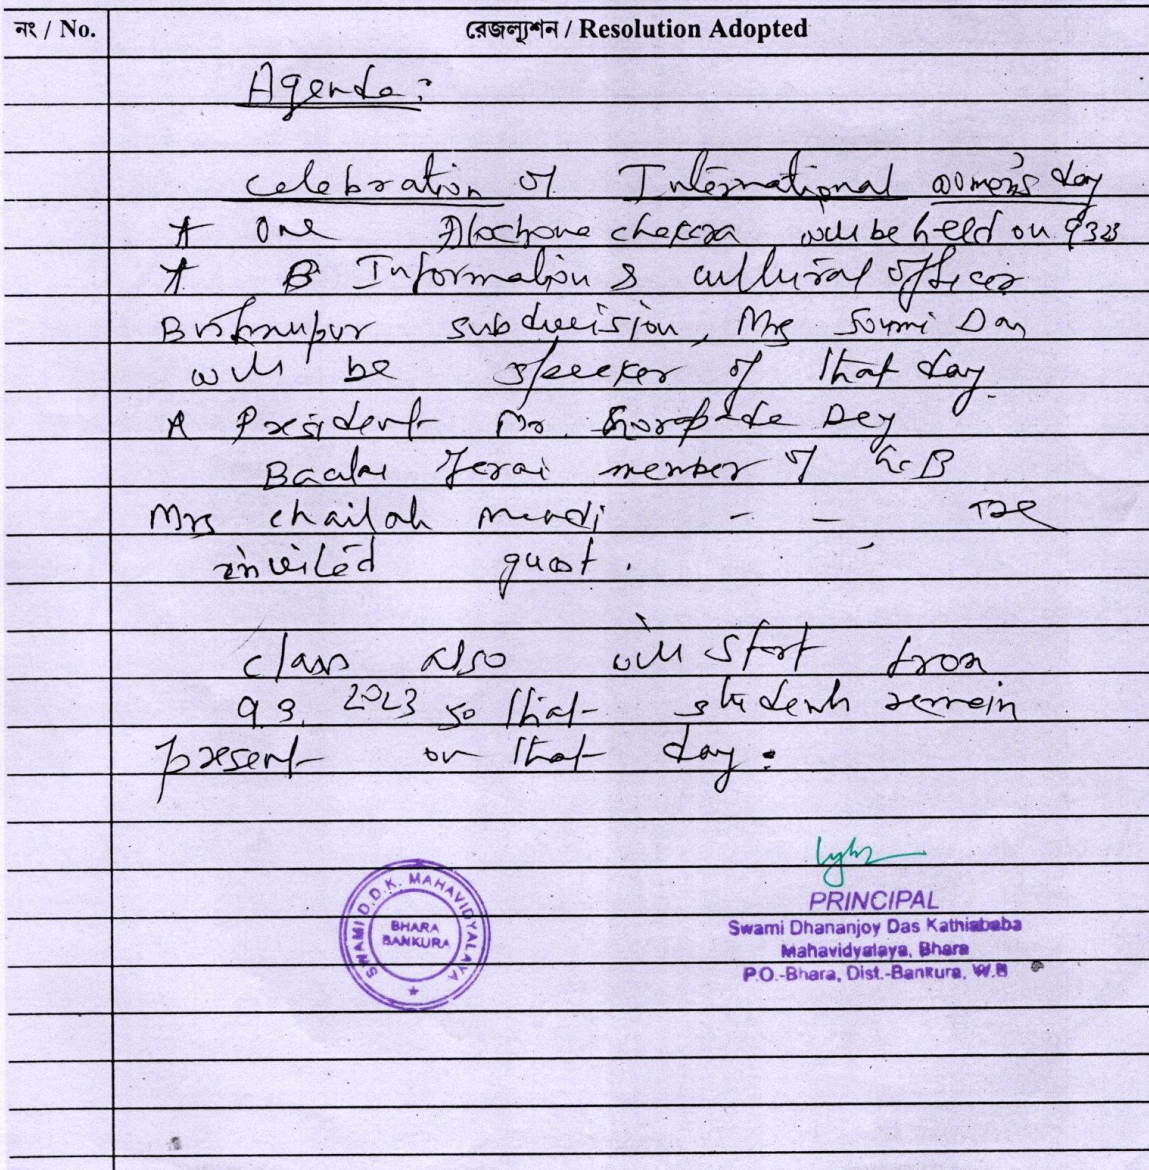 নং / No.
রেজল্যুশন / Resolution Adopted
Agenda:
Celebration of International women's day
One will be held on 9323
Information & cultural officer
Bishnupur subdivision, Mrs Soumi Das
will be speeker of that day.
President Dr. Dey
member of G.B
Mrs - - The
invited guest.
class also will start from
9.3.2023 so that students remein
present on that day.
SWAMI D.D.K. MAHAVIDYALAYA
BHARA
BANKURA
PRINCIPAL
Swami Dhananjoy Das Kathiababa
Mahavidyalaya, Bhara
P.O.-Bhara, Dist.-Bankura, W.B